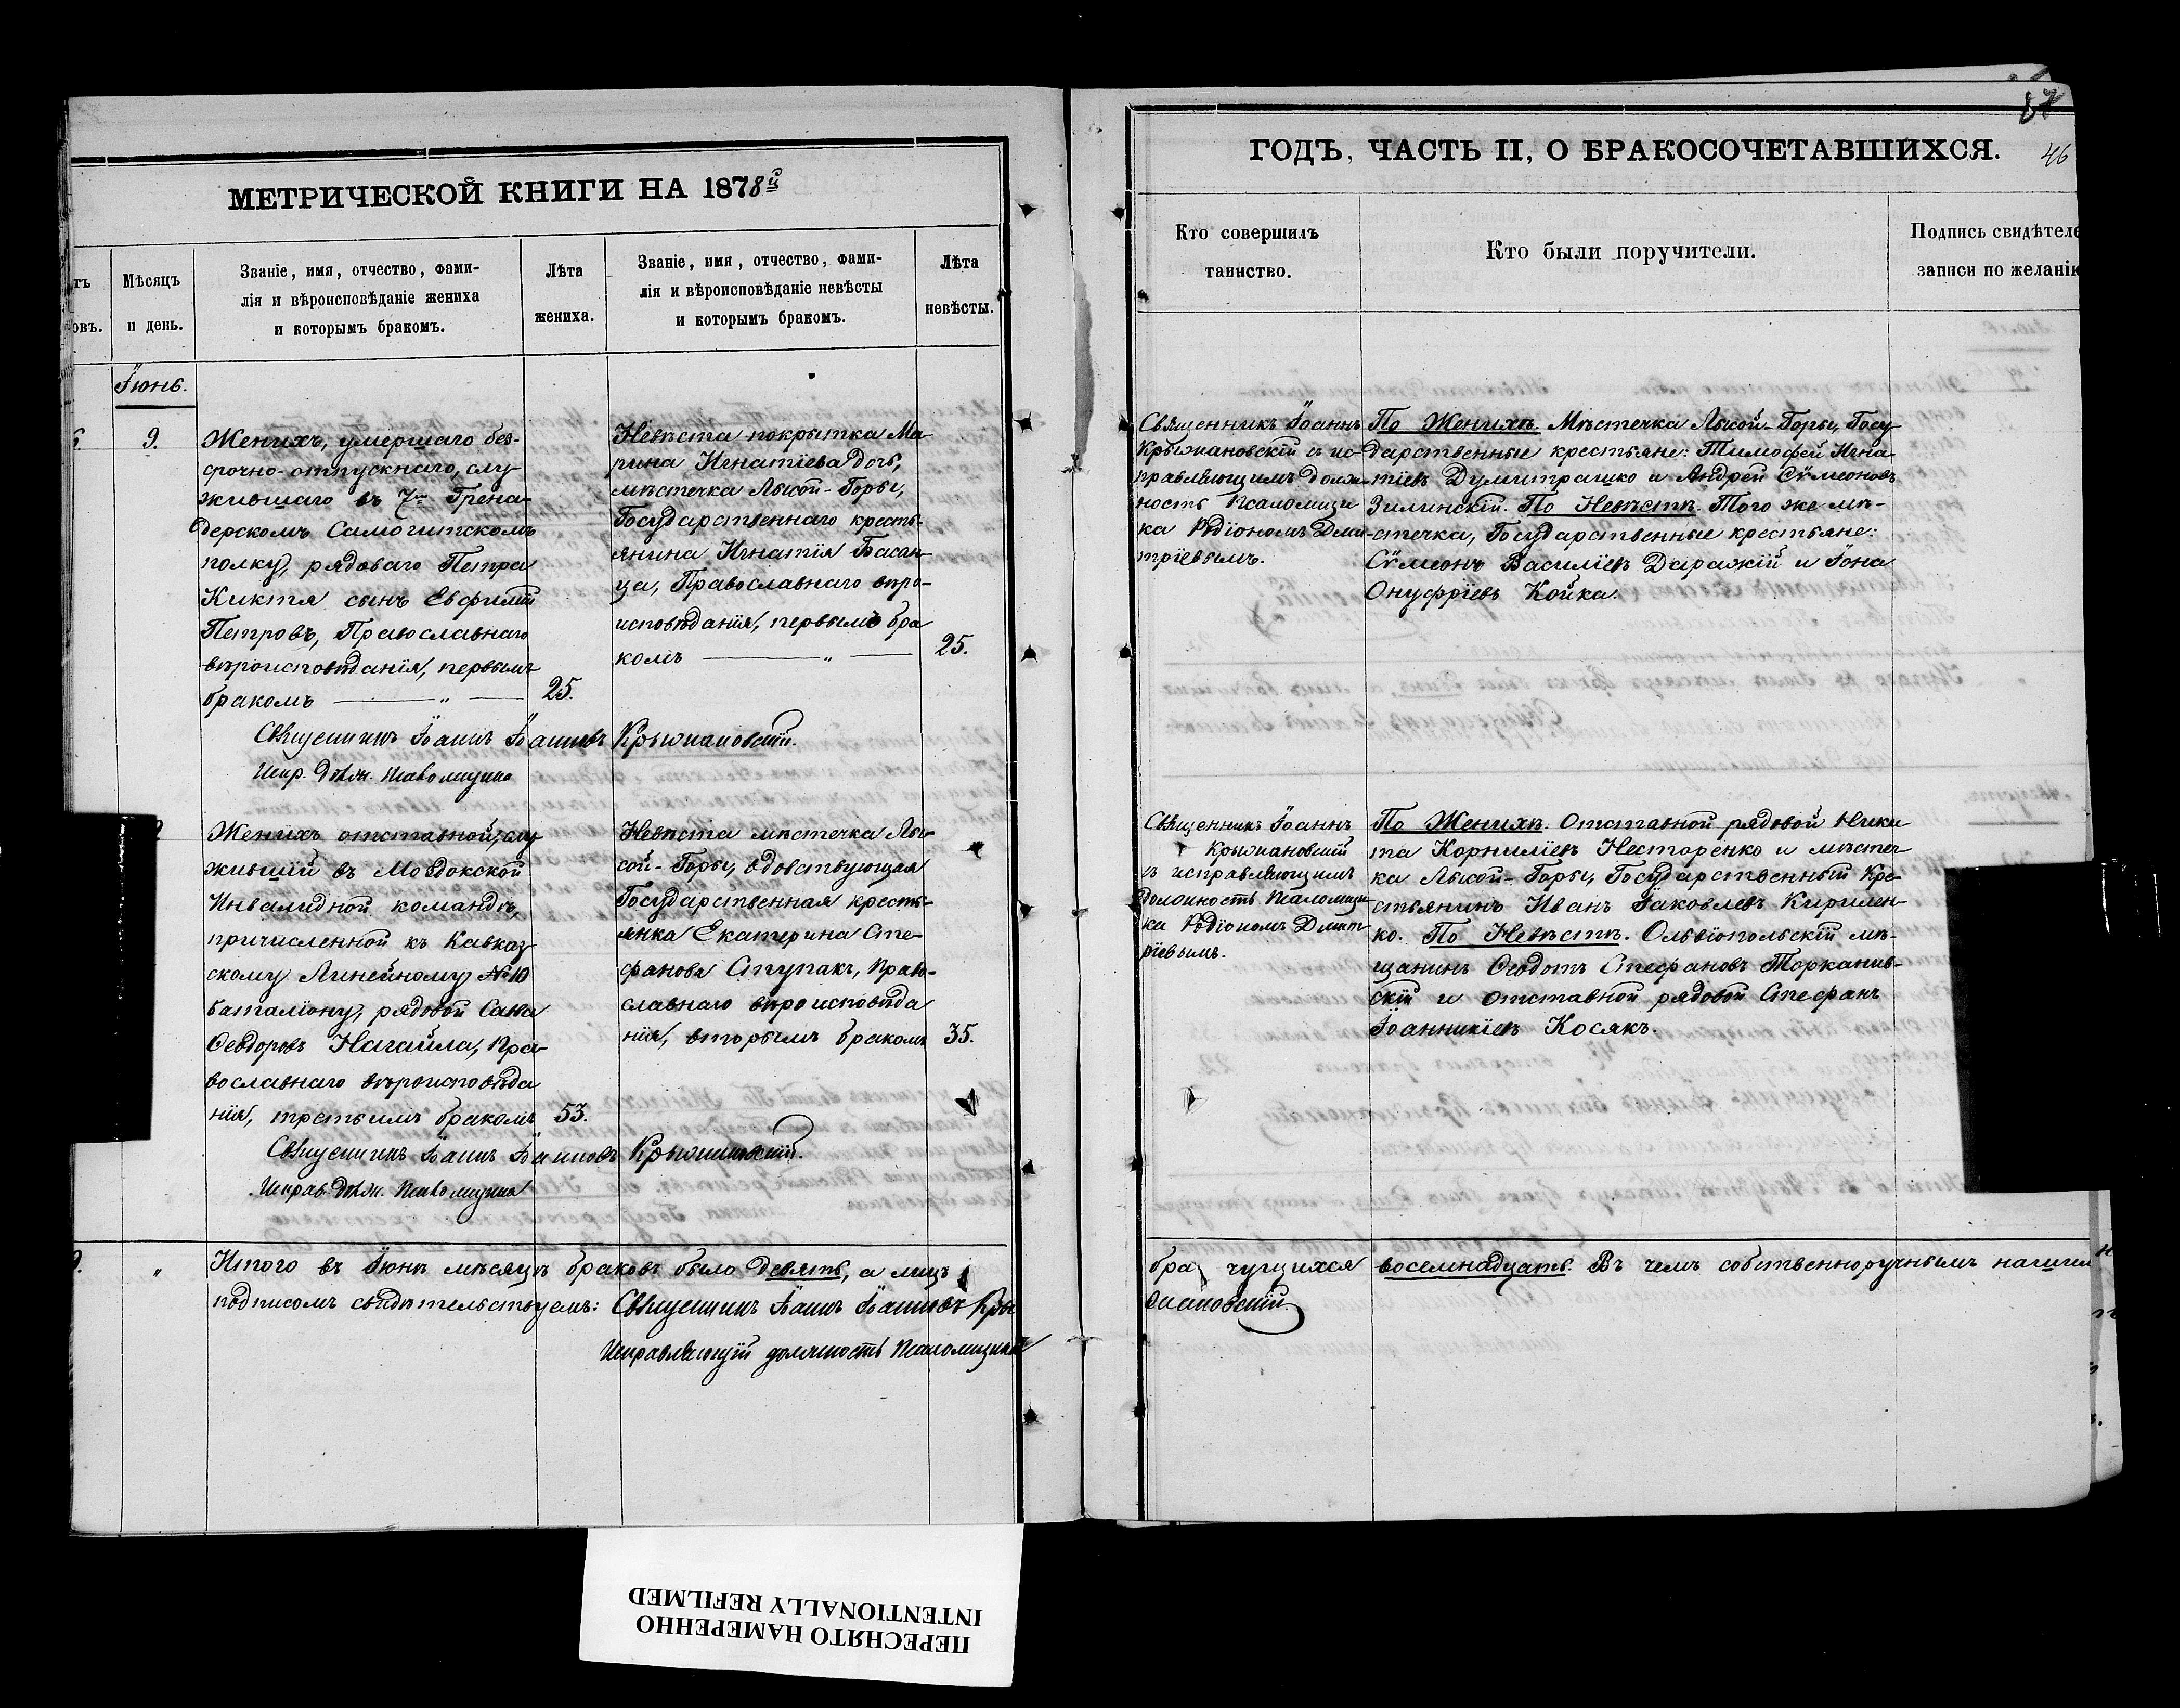 МЕТРИЧЕСКОЙ КНИГИ НА 1878й
Мѣсяцъ
и день.
Званіе, имя, отчество, фами-
лія и вѣроисповѣданіе жениха
и которымъ бракомъ.
Лѣта
жениха.
Званіе, имя, отчество, фами-
лія и вѣроисповѣданіе невѣсты
и которымъ бракомъ.
Лѣта
невѣсты.
Іюнь.
9.
Женихъ, умершаго без-
срочно-отпускнаго, слу
жившаго въ 7м Грена-
дерскомъ Самогитскомъ
полку, рядоваго Петра
Киктя сынъ Евфимій
Петровъ, Православнаго
вѣроисповѣданія, первымъ
бракомъ — „ —
25.
Невѣста покрытка Ма
рина Игнатіева дочь,
мѣстечка Лысой-Горы,
Государственнаго кресть-
янина Игнатія Басан-
ца, Православнаго вѣро-
исповѣданія, первымъ бра
комъ — „ —
25.
Священникъ Іоаннъ Іоанновъ Крыжановскій.
Испр. долж. Псаломщика
Женихъ отставной, слу
жившій въ Моздокской
Инвалидной командѣ,
причисленной къ Кавказ-
скому Линейному №10
баталіону, рядовой Сава
Ѳеодоровъ Нагайла, Пра-
вославнаго вѣроисповѣда
нія, третьимъ бракомъ
53.
Невѣста мѣстечка Лы-
сой-Горы, вдовствующая
Государственная кресть-
янка Екатерина Сте-
фанова Ступакъ, Право-
славнаго вѣроисповѣда
нія, вторымъ бракомъ
35.
Священникъ Іоаннъ Іоанновъ Крыжановскій.
Исправ. долж. Псаломщика
„
Итого въ Іюнѣ мѣсяцѣ браковъ было девять, а лицъ
подписомъ свидѣтельствуемъ: Священникъ Іоаннъ Іоанновъ Кры
Исправляющій должность Псаломщика
87
46
ГОДЪ, ЧАСТЬ II, О БРАКОСОЧЕТАВШИХСЯ.
Кто совершилъ
таинство.
Кто были поручители.
Подпись свидѣтеле
записи по желанію
Священникъ Іоаннъ
Крыжановскій съ ис-
правляющимъ долж-
ность Псаломщи
ка Родіономъ Дми-
тріевымъ.
По Женихѣ. Мѣстечка Лысой-Горы, Госу-
дарственные крестьяне: Тимофей Игна-
тіевъ Думитрашко и Андрей Сѵмеоновъ
Зилинскій. По Невѣстѣ. Того же мѣ-
стечка, Государственные крестьяне:
Сѵмеонъ Василіевъ Даражій и Іона
Онуфріевъ Койка.
Священникъ Іоаннъ
Крыжановскій
съ исправляющимъ
должность Псаломщи
ка Родіономъ Дмит
ріевымъ.
По Женихѣ. Отставной рядовой Ники
та Корниліевъ Нестаренко и мѣстеч
ка Лысой-Горы, Государственный Кре-
стьянинъ Иванъ Іаковлевъ Кирилен-
ко. По Невѣстѣ. Ольвіопольскій мѣ-
щанинъ Ѳеодотъ Стефановъ Торканив-
скій и отставной рядовой Стефанъ
Іоанникіевъ Косякъ.
бра чущихся восемнадцать. Въ чемъ собственноручнымъ нашим
жановскій
ПЕРЕСНЯТО НАМЕРЕННО
INTENTIONALLY REFILMED